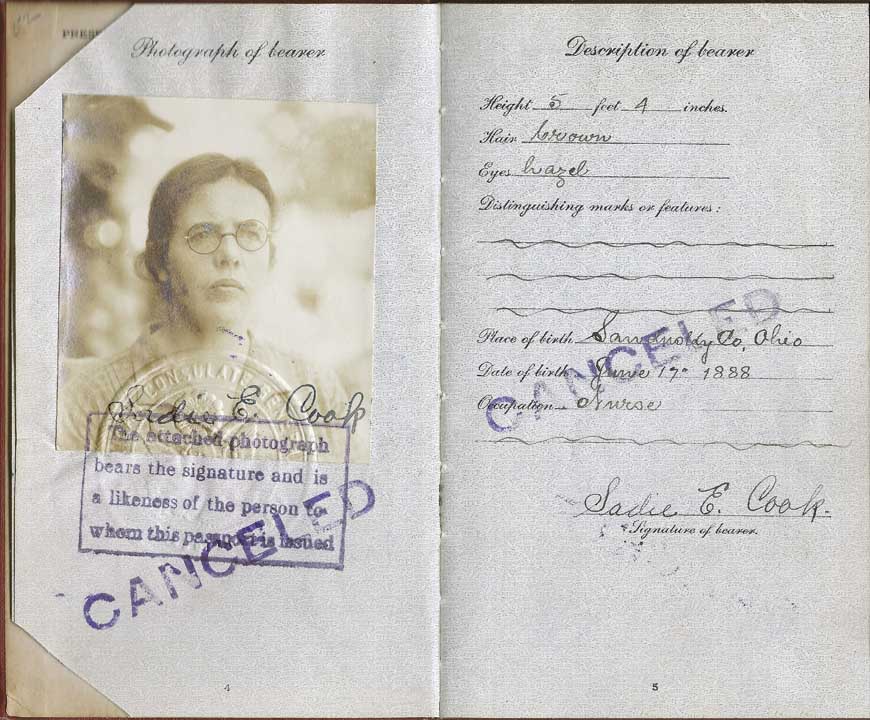 Photograph of bearer
CONSULATE
Sadie E. Cook
The attached photograph
bears the signature and is
a likeness of the person to
whom this passport is issued
CANCELED
4
Description of bearer
Height 5 feet 4 inches.
Hair brown
Eyes hazel
Distinguishing marks or features:
Place of birth Co, Ohio
Date of birth June 17 1888
Occupation Nurse
CANCELED
Sadie E. Cook.
Signature of bearer.
5